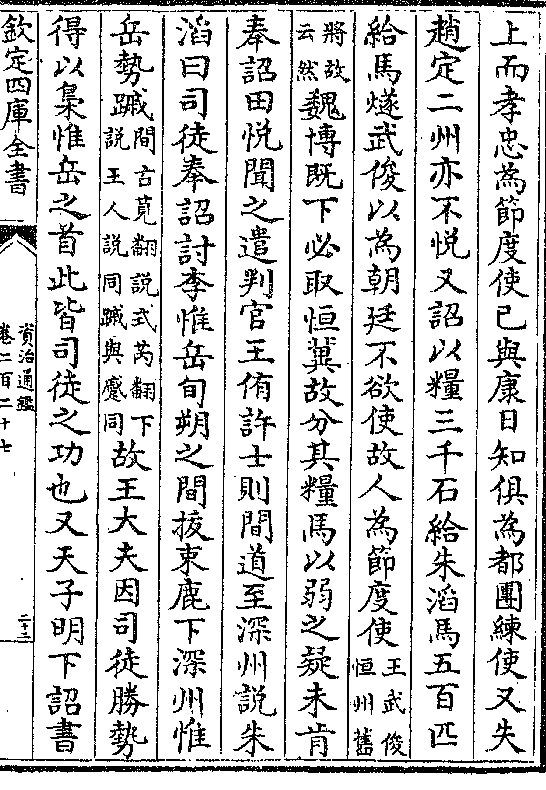 上而孝忠為節度使已與康日知俱為都團練使又失
趙定二州亦不悦又詔以糧三千石給朱滔馬五百匹
給馬燧武俊以為朝廷不欲使故人為節度使王武俊恒州舊
將故云然魏博既下必取恒冀故分其糧馬以弱之疑未肯
奉詔田悦聞之遣判官王侑許士則間道至深州說朱
滔曰司徒奉詔討李惟岳旬朔之間拔束鹿下深州惟
岳勢蹙間古莧翻說式芮翻下說王人說同蹙與蹙同故王大夫因司徒勝勢
得以梟惟岳之首此皆司徒之功也又天子明下詔書
欽定四庫全書
資治通鑑
卷二百二十七
二十二